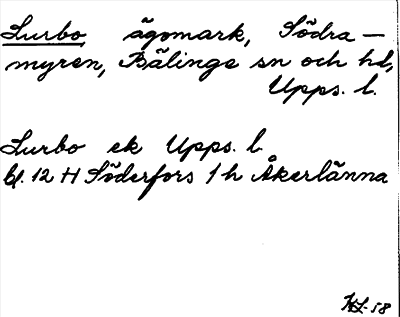 Lurbo ägomark, Södra-
myren, Bälinge sn och hd,
Upps. l.
Lurbo ek Upps. l.
bl. 12 H Söderfors 1 h Åkerlänna
HL-58